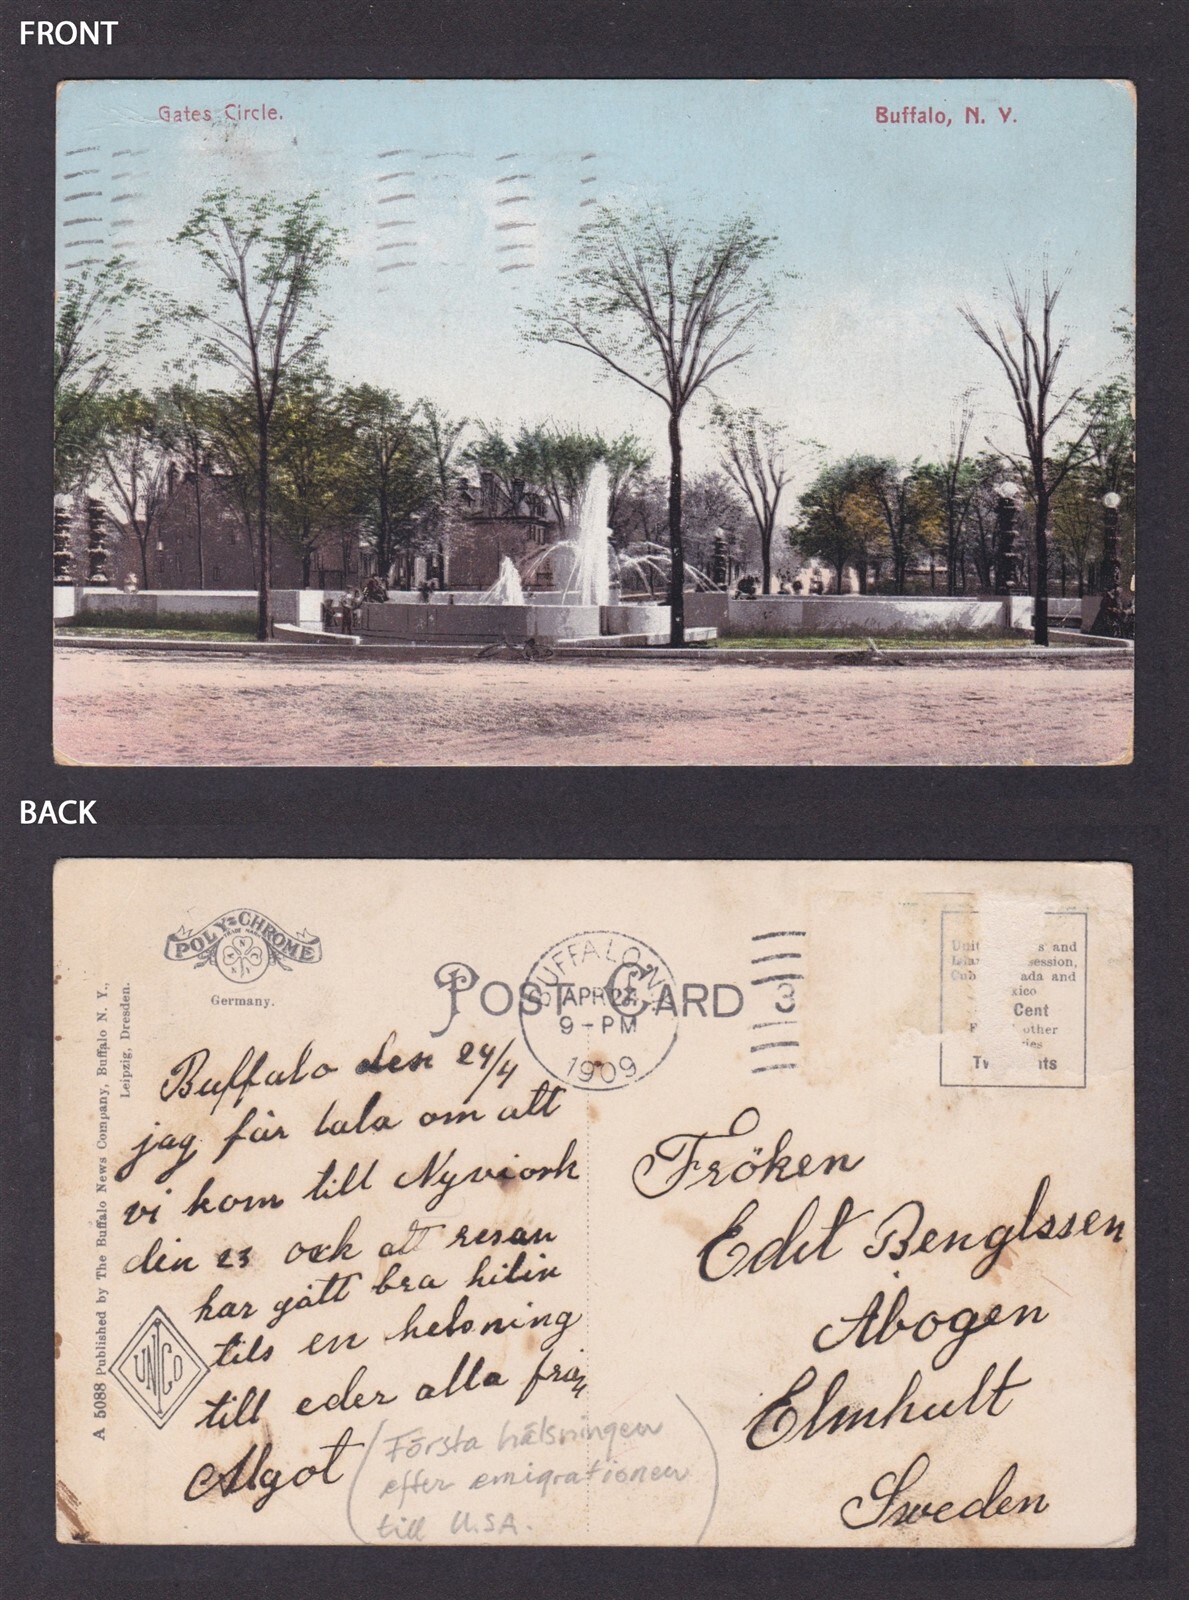 FRONT
Gates Circle.
Buffalo, N. Y.
BACK
POLY-CHROME
Germany.
POST CARD
BUFFALO, N.Y.
APR 24
9-PM
1909
3
Unit s and
Isla session,
Cub ada and
xico
Cent
F other
ries
Tw nts
A 5088 Published by The Buffalo News Company, Buffalo N. Y.,
Leipzig, Dresden.
UNCo
Buffalo den 24/4
jag får tala om att
vi kom till Nyviork
den 23 ock att resan
har gått bra hitin
tils en helsning
till eder alla från
Algot
(Första hälsningen
efter emigrationen
till U.S.A.)
Fröken
Edit Bengtssen
Åbogen
Elmhult
Sweden